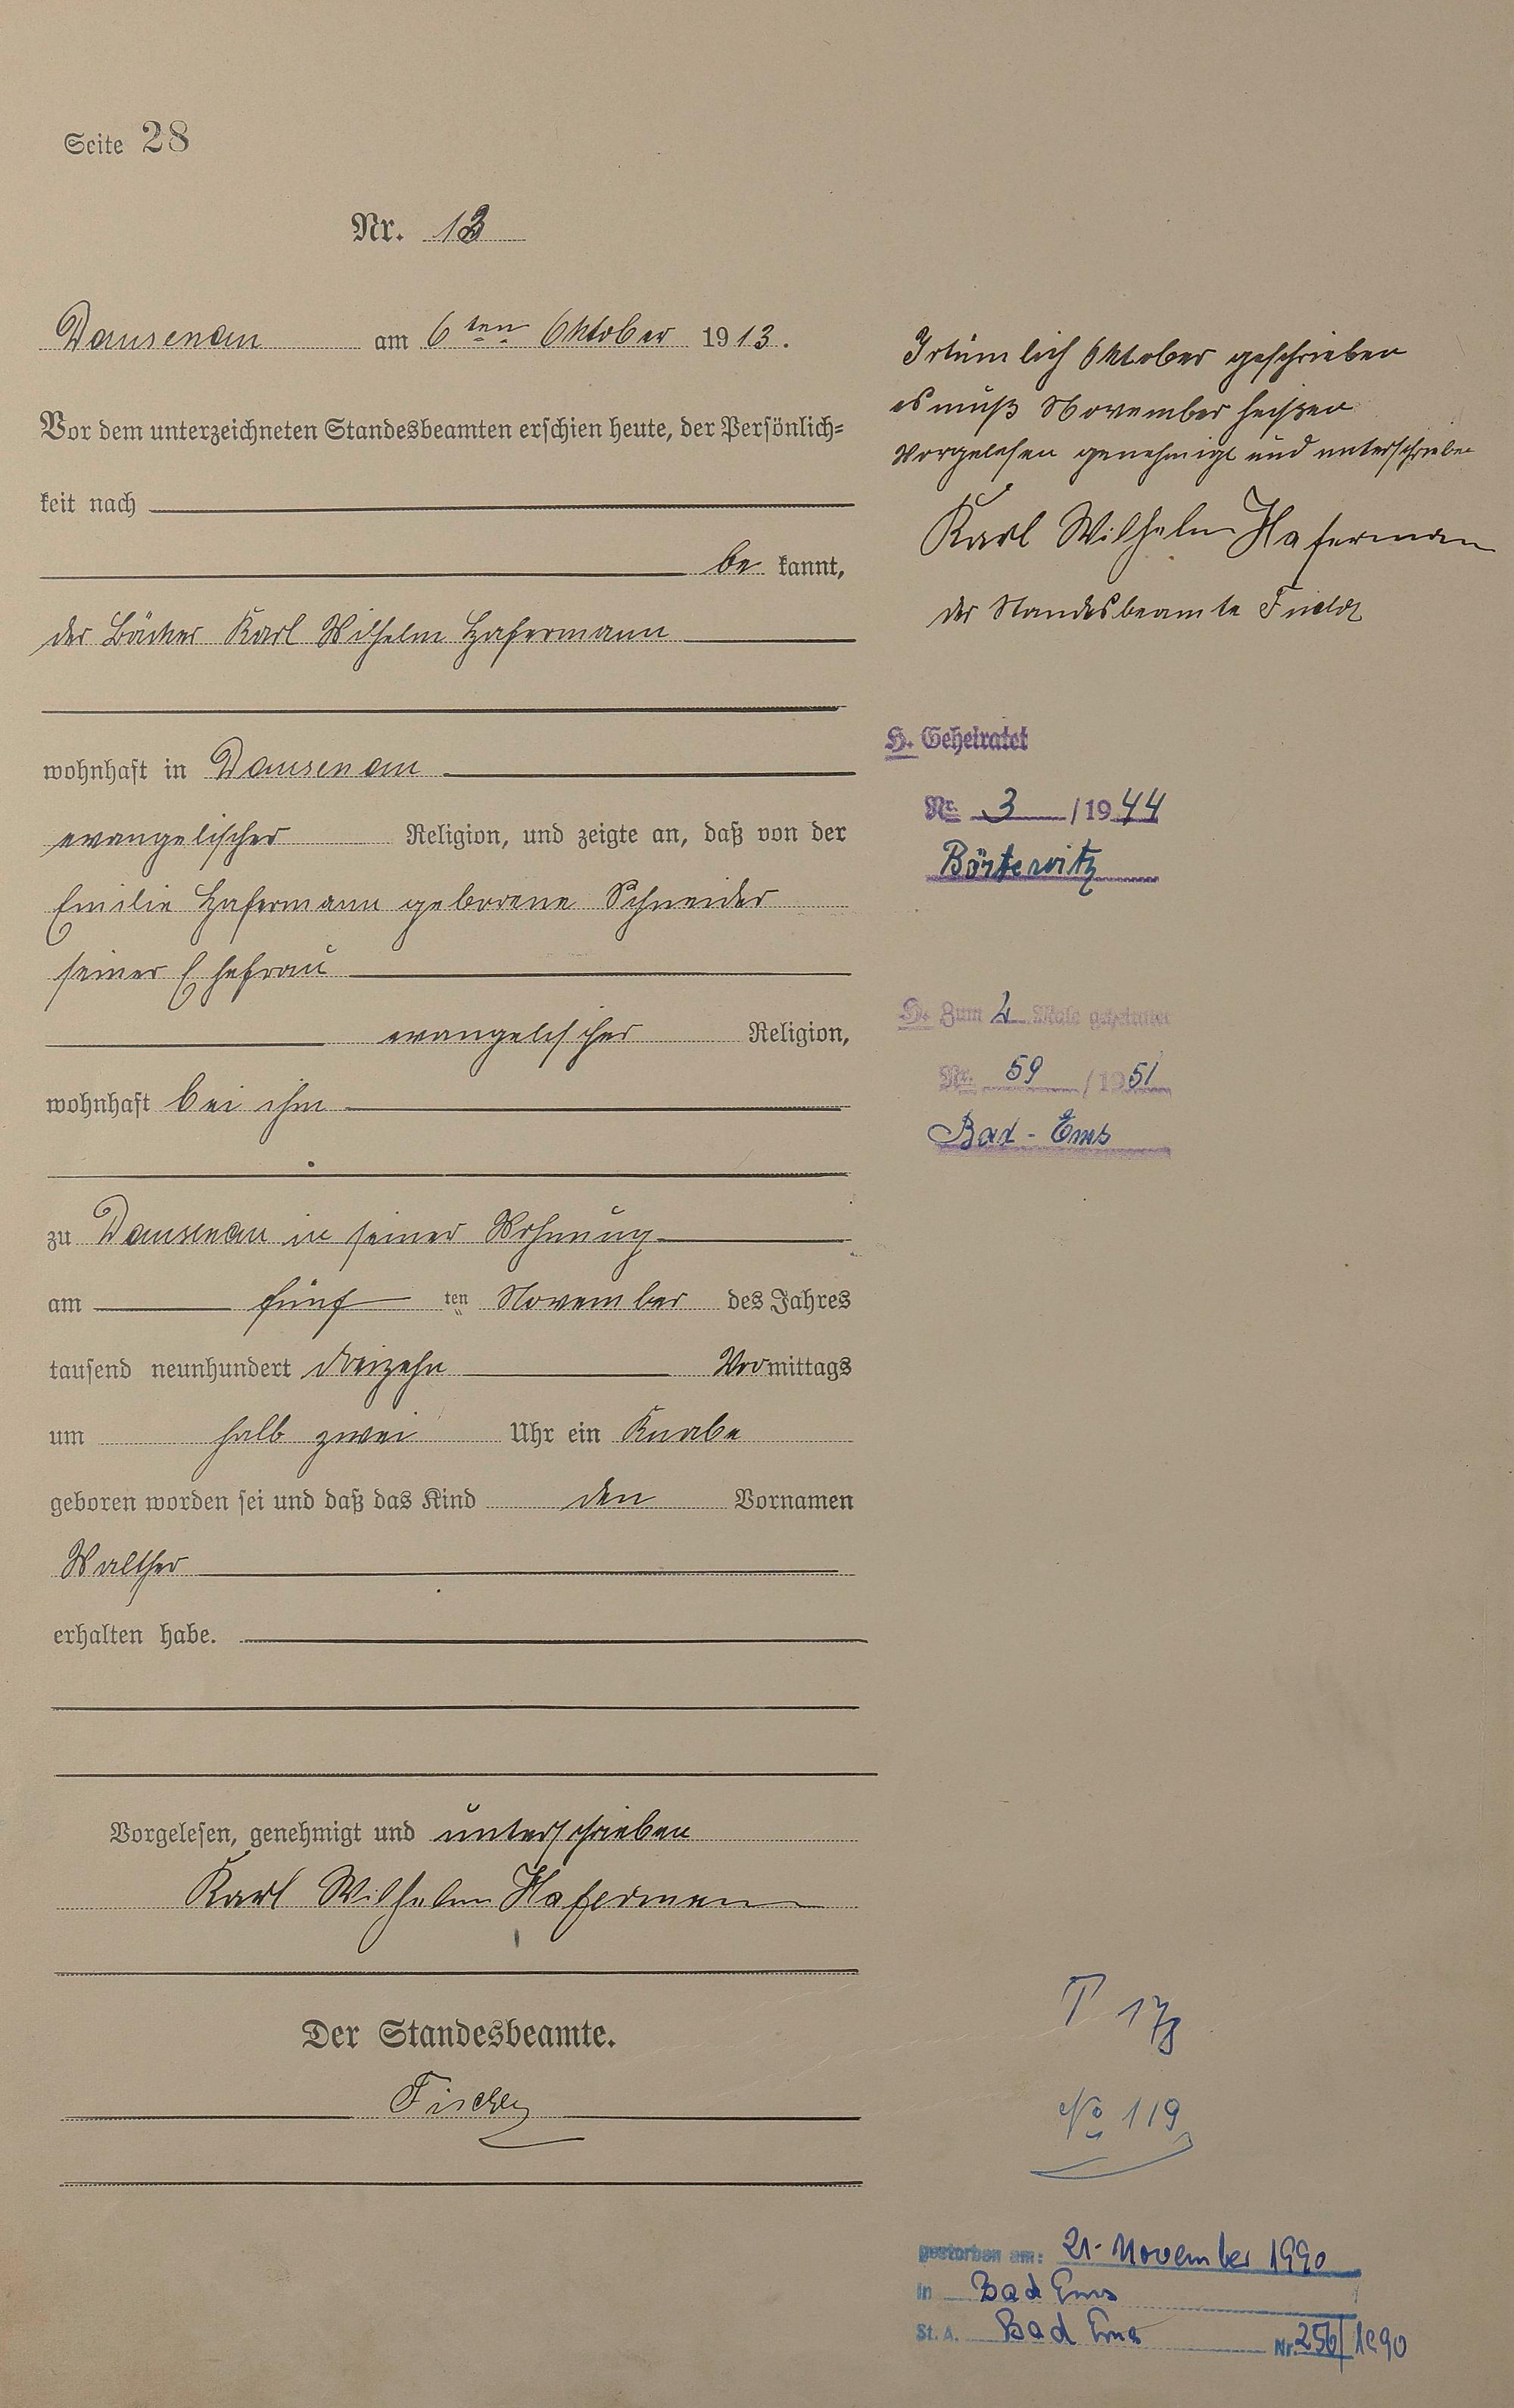 Seite 28
Nr. 13
Dausenau am 6ten Oktober 1913.
Vor dem unterzeichneten Standesbeamten erschien heute, der Persönlich=
keit nach
be kannt,
der Bäcker Karl Wilhelm Hafermann
wohnhaft in Dausenau
evangelischer Religion, und zeigte an, daß von der
Emilie Hafermann geborene Schneider
seiner Ehefrau
evangelischer Religion,
wohnhaft bei ihm
zu Dausenau in seiner Wohnung
am fünf ten November des Jahres
tausend neunhundert dreizehn Vormittags
um halb zwei Uhr ein Knabe
geboren worden sei und daß das Kind den Vornamen
Walther
erhalten habe.
Vorgelesen, genehmigt und unterschrieben
Karl Wilhelm Hafermann
Der Standesbeamte.
Irtümlich Oktober geschrieben
es muß November heißen
Vorgelesen genehmigt und unterschrieben
Karl Wilhelm Haferman
der Standesbeamte
H. Geheiratet
Nr. 3 / 1944
Börtewitz
H. Zum 2 Male geheiratet
Nr. 59 / 1951
Bad-Ems
No 119
gestorben am: 21. November 1990
in Bad Ems
St. A. Bad Ems Nr. 256/1990